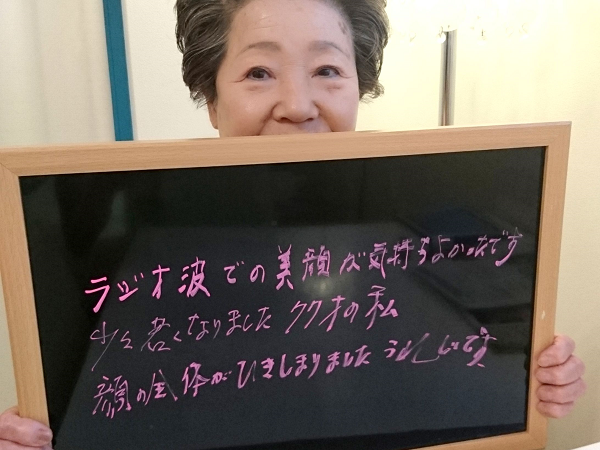 ラジオ波での美顔が気持ちよかったです
少々若くなりました 77才の私
顔の全体がひきしまりました うれしいです